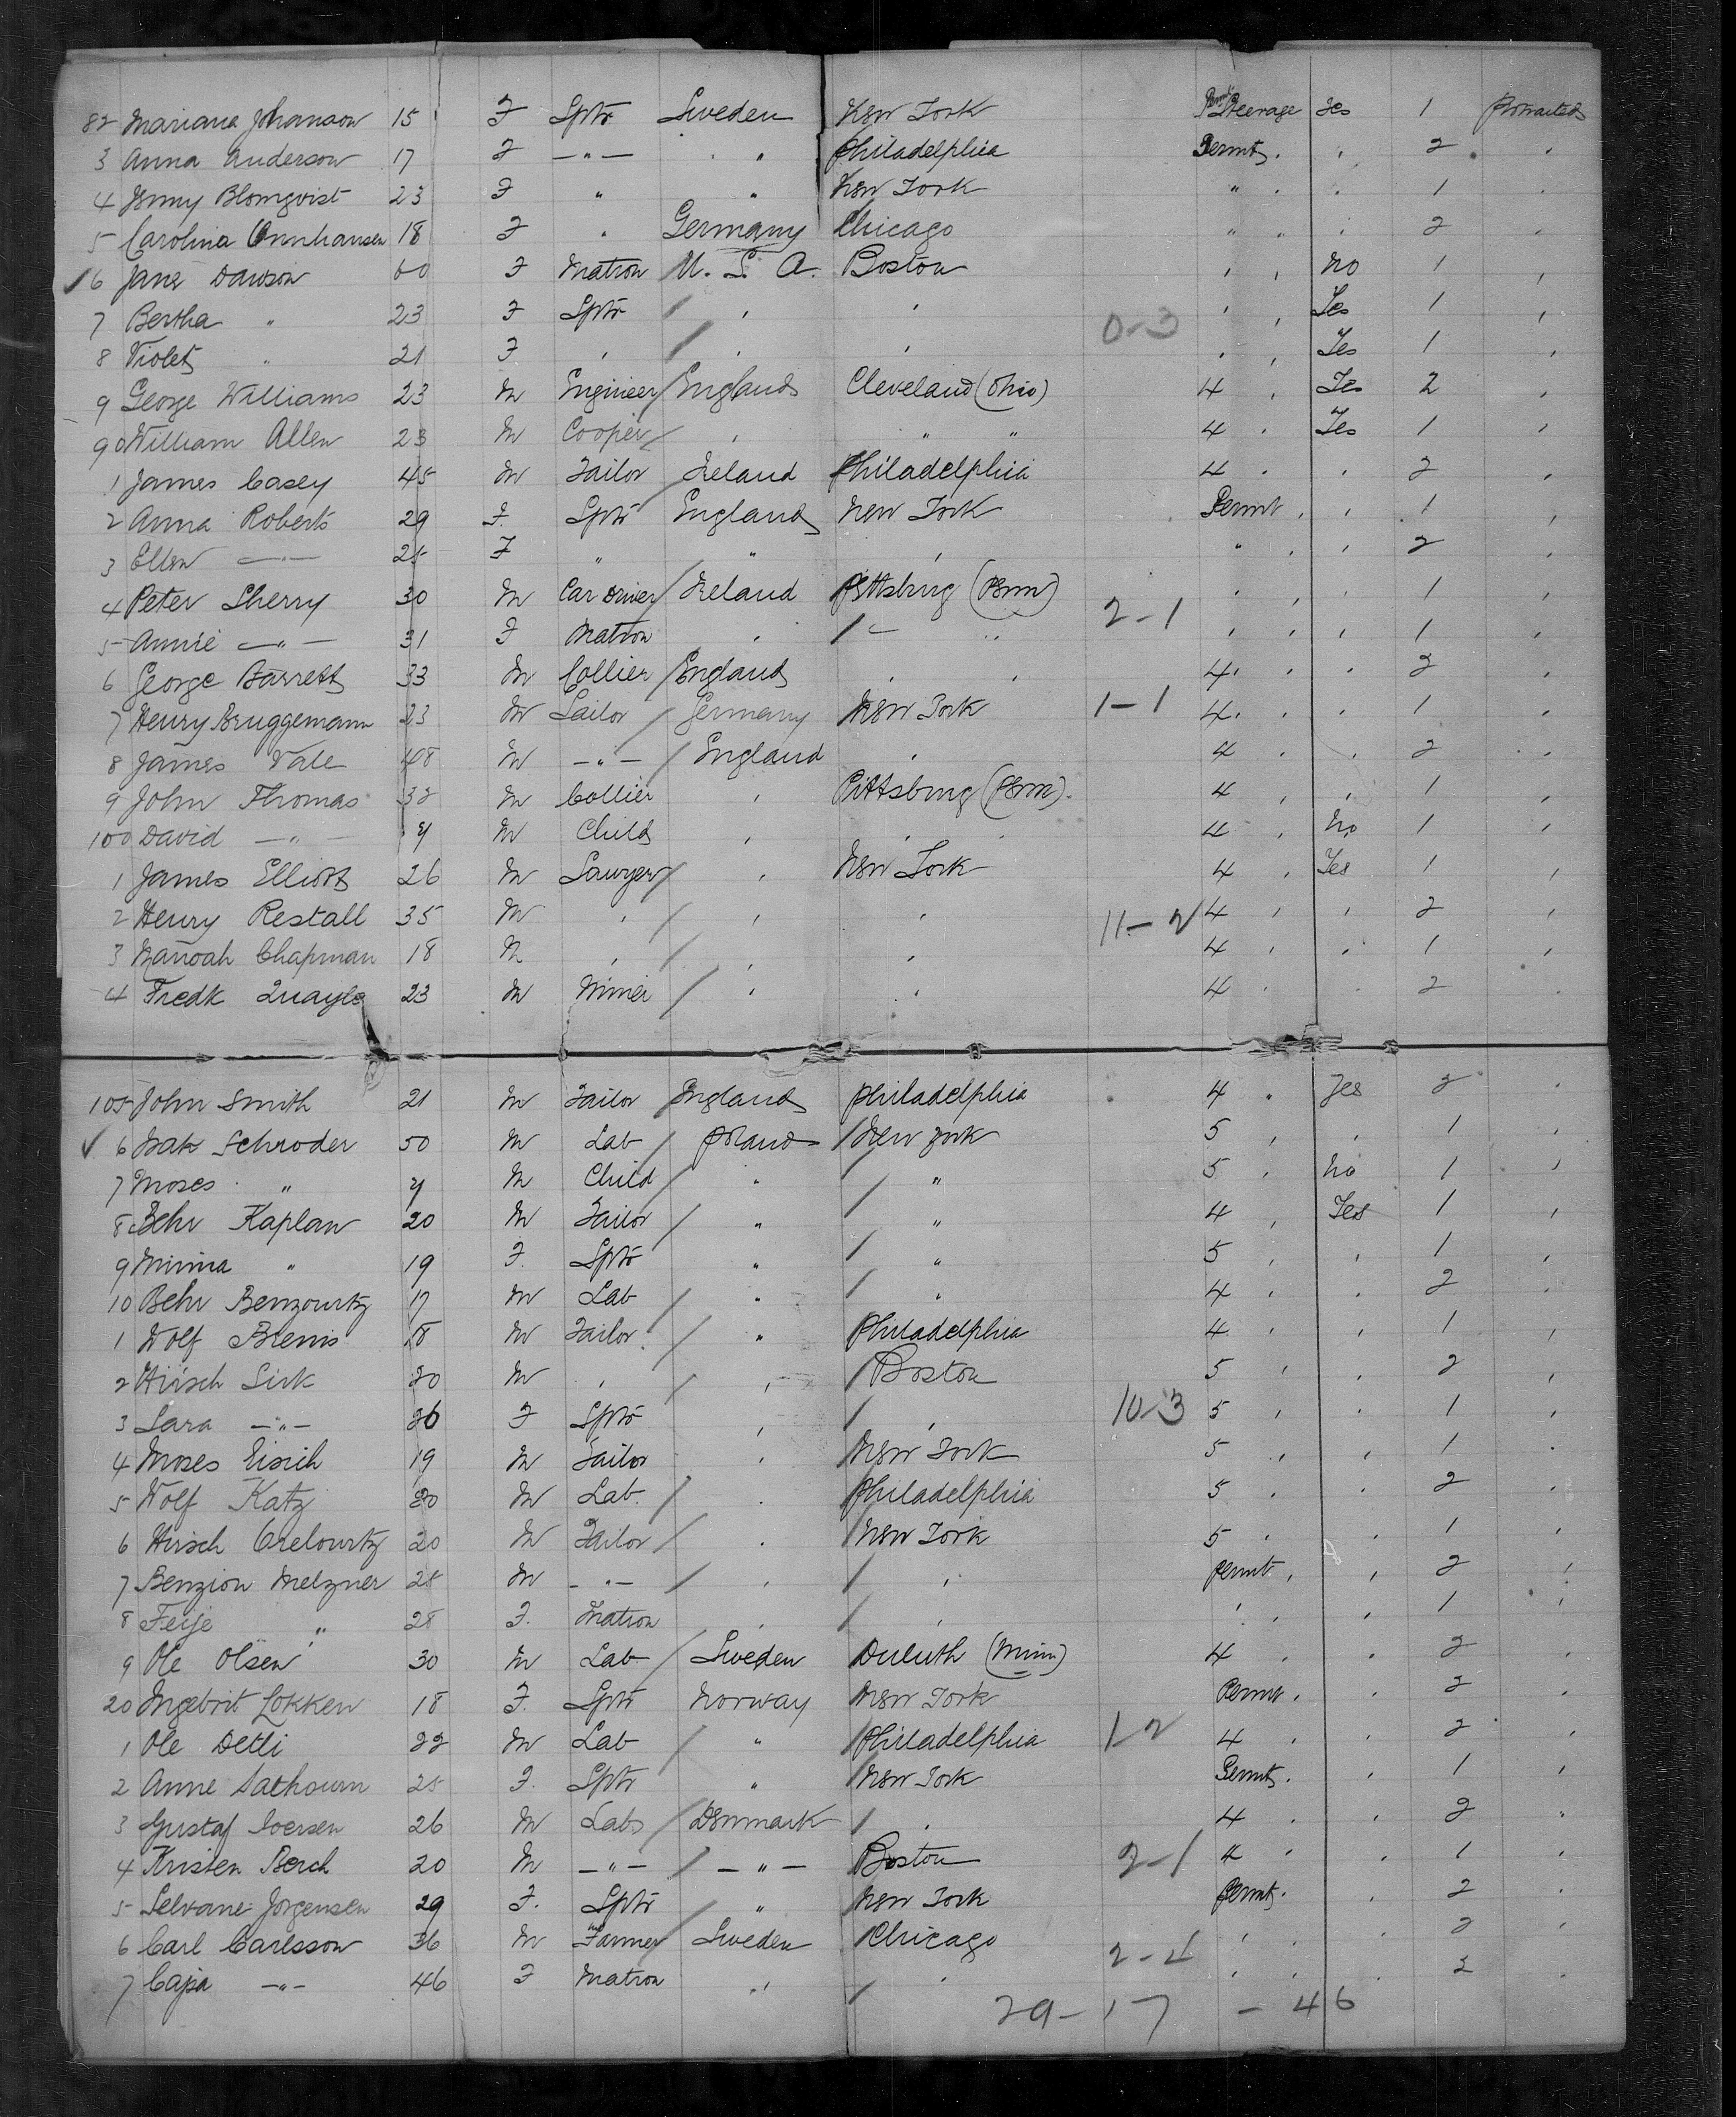 82 Mariana Johanson 15 F Sptr Sweden New York Steerage Yes 1 Protracted
3 Anna Anderson 17 F —"— " Philadelphia Permt. " 2 "
4 Jenny Blomqvist 23 F " " New York " " " 1 "
5 Carolina 18 F " Germany Chicago " " " 2 "
6 Jane Dawson 60 F Matron U. S. A. Boston " " No 1 "
7 Bertha " 23 F Sptr " " " " Yes 1 "
0-3
8 Violet " 21 F " " " " " Yes 1 "
9 George Williams 23 M Engineer England Cleveland (Ohio) 4 " Yes 2 "
90 William Allen 23 M Cooper " " " 4 " Yes 1 "
1 James Casey 45 M Tailor Ireland Philadelphia 4 " " 2 "
2 Anna Roberts 29 F. Sptr England New York Permt " " 1 "
3 Ellen —"— 25 F " " " " " " 2 "
4 Peter Sherry 30 M Car Driver Ireland Pittsburg (Penn) " " " 1 "
2-1
5 Annie —"— 31 F Matron " " " " " " 1 "
6 George Barrett 33 M Collier England " " 4 " " 2 "
7 Henry Bruggemann 23 M Sailor Germany New York 1-1 4 " " 1 "
8 James Vale 48 M —"— England " 4 " " 2 "
9 John Thomas 32 M Collier " Pittsburg (Penn). 4 " " 1 "
100 David —"— M Child " " " 4 " No 1 "
1 James Elliott 26 M Sawyer " New York 4 " Yes 1 "
2 Henry Restall 35 M " " " 11-2 4 " " 2 "
3 Manoah Chapman 18 M " " " 4 " " 1 "
4 Fredk Quayle 23 M Miner " " 4 " " 2 "
105 John Smith 21 M Tailor England Philadelphia 4 " Yes 2 "
6 Schroder 50 M Lab Poland New York 5 " " 1 "
7 Moses " M Child " " 5 " No 1 "
8 Behr Kaplan 20 M Tailor " " 4 " Yes 1 "
9 Minna " 19 F. Sptr " " 5 " " 1 "
10 Behr Benzowitz 17 M Lab " " 4 " " 2 "
1 Wolf Brenis 18 M Tailor " Philadelphia 4 " " 1 "
2 Hirsch Sirk 20 M " " Boston 5 " " 2 "
3 Sara —"— 26 F Sptr " " 10-3 5 " " 1 "
4 Moses 19 M Tailor " New York 5 " " 1 "
5 Wolf Katz 20 M Lab. " Philadelphia 5 " " 2 "
6 Hirsch 20 M Tailor " New York 5 " " 1 "
7 Benzion Melzner 28 M —"— " " Permt " " 2 "
8 Feije " 28 F. Matron " " " " " 1 "
9 Ole Olsen 30 M Lab Sweden Duluth (Minn) 4 " " 2 "
20 Ingebrit Lokken 18 F. Sptr Norway New York Permt " " 2 "
1 Ole Detli 22 M Lab " Philadelphia 1-2 4 " " 2 "
2 Anne 25 F. Sptr " New York Permt. " 1 "
3 Gustaf Ioersen 26 M Lab Denmark " 4 " " 2 "
4 Kristen Berch 20 M —"— —"— Boston 2-1 4 " " 1 "
5 Selvane Jorgensen 29 F. Sptr " New York Permt. " 2 "
6 Carl Carlsson 36 M Farmer Sweden Chicago " " " 2 "
2-2
7 Cajsa —"— 46 F Matron " " " " " 2 "
29-17 - 46